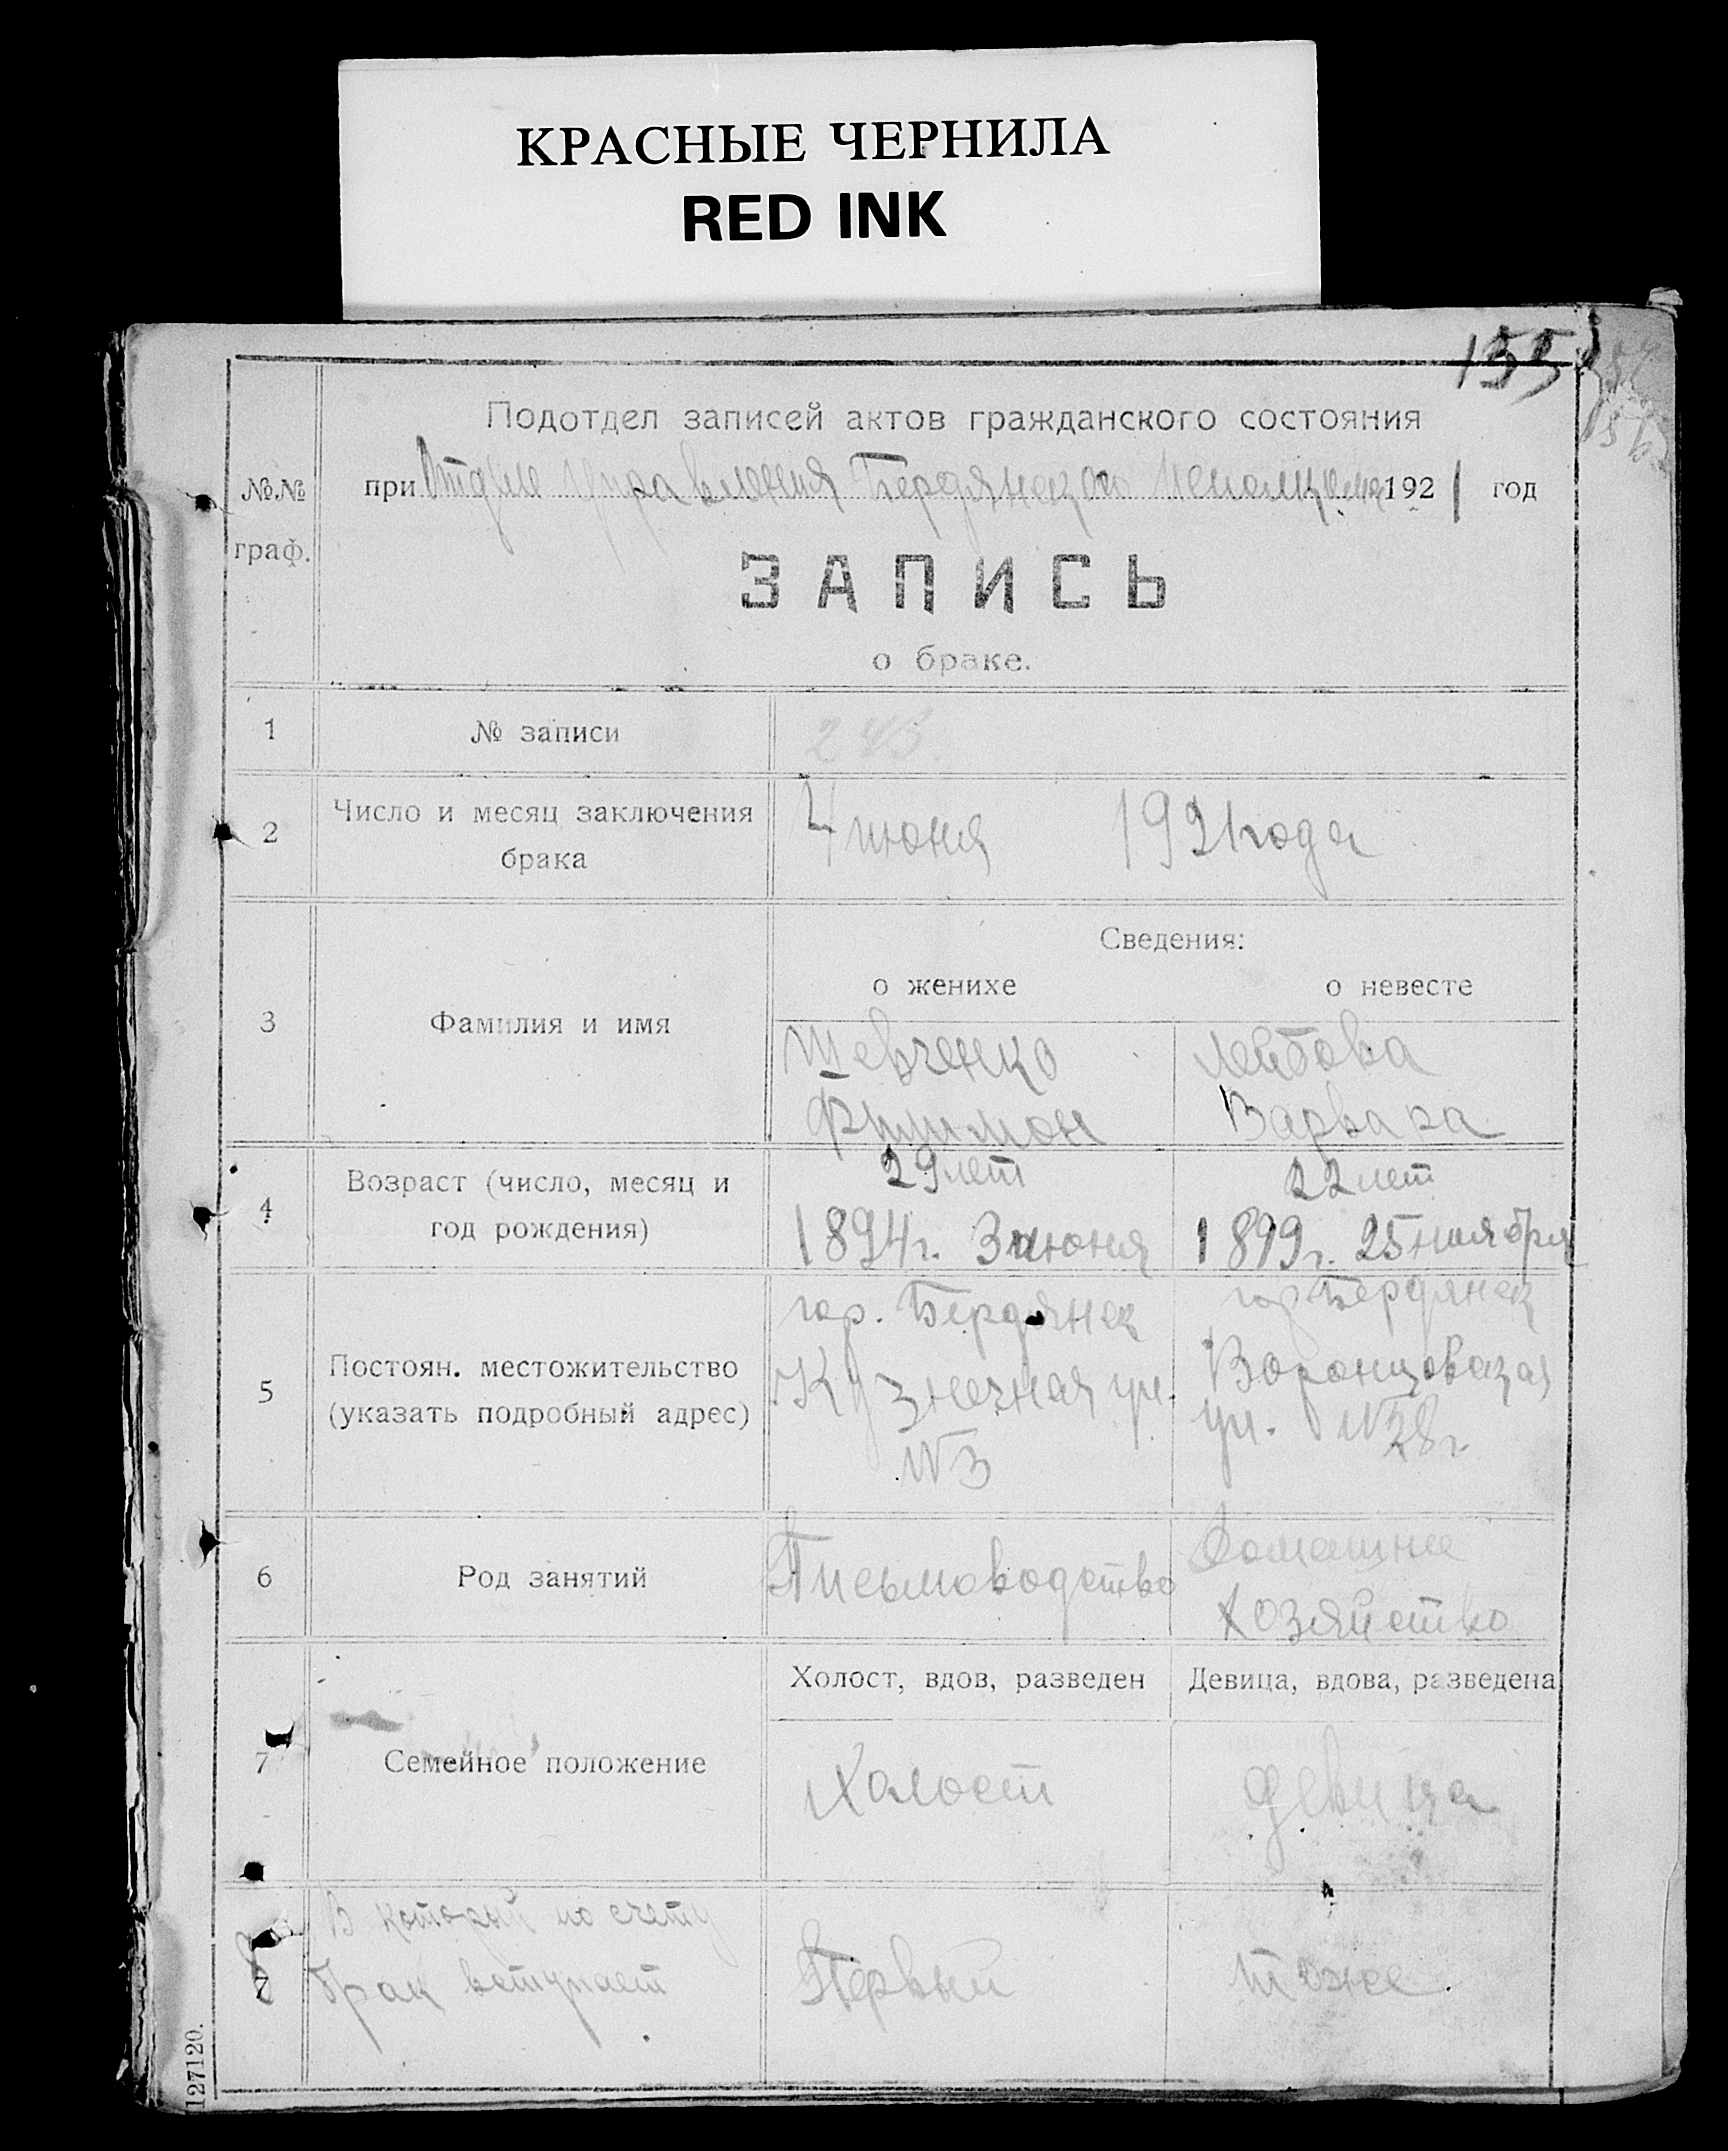 КРАСНЫЕ ЧЕРНИЛА
RED INK
155
Подотдел записей актов гражданского состояния
№№ граф.
при Отделе Управления Бердянского Исполкома 1921 год
ЗАПИСЬ
о браке.
1 № записи 243
2 Число и месяц заключения брака
4 июня 1921 года
Сведения:
о женихе о невесте
3 Фамилия и имя
Шевченко Лейбова
Филимон Варвара
4 Возраст (число, месяц и год рождения)
29 лет 22 лет
1894 г. 3 июня 1899 г. 25 ноября
5 Постоян. местожительство (указать подробный адрес)
гор. Бердянск гор. Бердянск
Кузнечная ул. Воронцовская
№ 3 ул. № 28
6 Род занятий
Письмоводство Домашнее
хозяйство
Холост, вдов, разведен Девица, вдова, разведена
7 Семейное положение
Холост девица
В который по счету
брак вступает Первый тоже
127120.